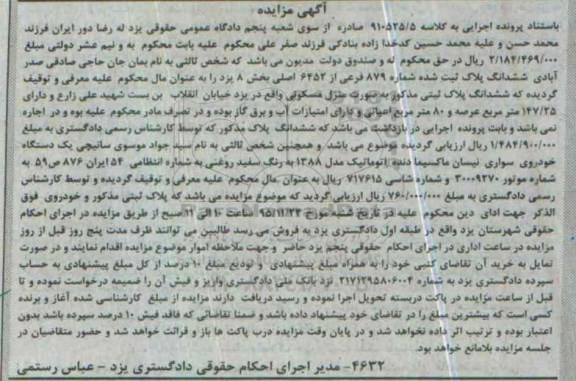 آگهی مزایده
باستناد پرونده اجرایی به کلاسه ۹۱۰۵۲۵/۵ صادره از سوی شعبه پنجم دادگاه عمومی حقوقی یزد له رضا دور ایران فرزند
محمد حسن و علیه محمد حسین کدخدا زاده بنادکی فرزند صفر علی محکوم علیه بابت محکوم به و نیم عشر دولتی مبلغ
۲/۱۸۴/۴۶۹/۰۰۰ ریال در حق محکوم له و صندوق دولت مدیون می باشد که شخص ثالثی به نام یمان جان حاجی صادقی صدر
آبادی ششدانگ پلاک ثبت شماره ۸۷۹ فرعی از ۶۴۵۲ اصلی بخش ۸ یزد را به عنوان مال محکوم علیه معرفی و توقیف
گردیده که ششدانگ پلاک ثبتی مذکور به صورت منزل مسکونی واقع در یزد خیابان انقلاب بن بست شهید علی زارع و دارای
۱۴۷/۲۵ متر مربع عرصه و ۸۰ متر مربع اعیانی و دارای امتیازات آب و برق گاز بوده و در تصرف مادر محکوم علیه بوه و در اجاره
نمی باشد و بابت پرونده اجرایی در بازداشت می باشد که ششدانگ پلاک مذکور که توسط کارشناس رسمی دادگستری به مبلغ
۱/۴۸۴/۹۰۰/۰۰۰ ریال ارزیابی گردیده موضوع می باشد و همچنین شخص ثالثی به نام سید جواد موسوی ساتیجی یک دستگاه
خودروی سواری نیسان ماکسیما دنده اتوماتیک مدل ۱۳۸۸ به رنگ سفید روغنی به شماره انتظامی ۵۴ ایران ۸۷۶ ص ۵۹ به
شماره موتور ۳۰۰۰۹۲۷۰ و شماره شاسی ۷۱۷۶۱۵ ریال به عنوان مال محکوم علیه معرفی و توقیف گردیده و توسط کارشناس
رسمی دادگستری به مبلغ ۷۶۰/۰۰۰/۰۰۰ ریال ارزیابی گردید که موضوع مزایده می باشد که پلاک ثبتی مذکور و خودروی فوق
الذکر جهت ادای دین محکوم علیه در تاریخ شنبه مورخ ۹۵/۱۱/۲۳ ساعت ۱۰ الی ۱۱ صبح از طریق مزایده در اجرای احکام
حقوقی شهرستان یزد واقع در طبقه اول دادگستری یزد به فروش می رسد طالبین می توانند ظرف مدت پنج روز قبل از روز
مزایده در ساعت اداری در اجرای احکام حقوقی پنجم یزد حاضر و جهت ملاحظه اموار موضوع مزایده اقدام نمایند و در صورت
تمایل به خرید آن تقاضای کتبی خود را به همراه مبلغ پیشنهادی و تودیع مبلغ ۱۰ درصد از کل مبلغ پیشنهادی به حساب
سپرده دادگستری یزد به شماره ۲۱۷۱۲۹۵۸۰۶۰۰۴ نزد بانک ملی دادگستری واریز و فیش آن را ضمیمه درخواست نموده و تا
قبل از ساعت مزایده در پاکت دربسته تحویل اجرا نموده و رسید دریافت دارند مزایده از مبلغ کارشناسی شده آغاز و برنده
کسی است که بیشترین مبلغ را در تقاضای خود پیشنهاد داده باشد و ضمنا تقاضائی که فاقد فیش ۱۰ درصد سپرده باشد بدون
اعتبار بوده و ترتیب اثر داده نخواهد شد و در پایان وقت مزایده درب پاکت ها باز و قرائت خواهد شد و حضور متقاضیان در
جلسه مزایده بلامانع خواهد بود.
۴۶۳۲- مدیر اجرای احکام حقوقی دادگستری یزد - عباس رستمی